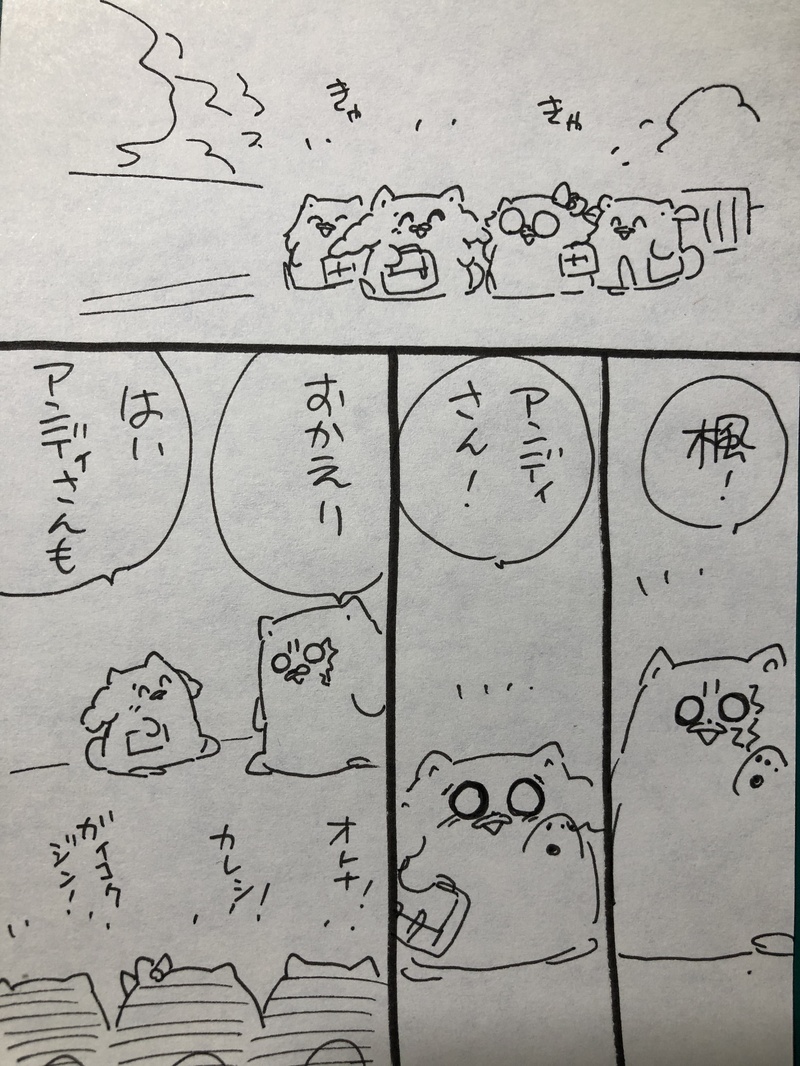 きゃ
きゃ
楓!
アンディ
さん!
おかえり
はい
アンディさんも
オトナ!
カレシ!
ガイコク
ジン!